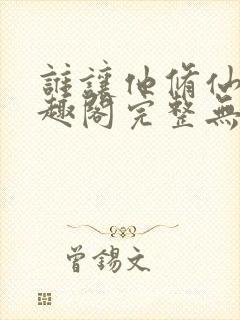 誰讓他脩仙
趣閣完整無
曾錫文